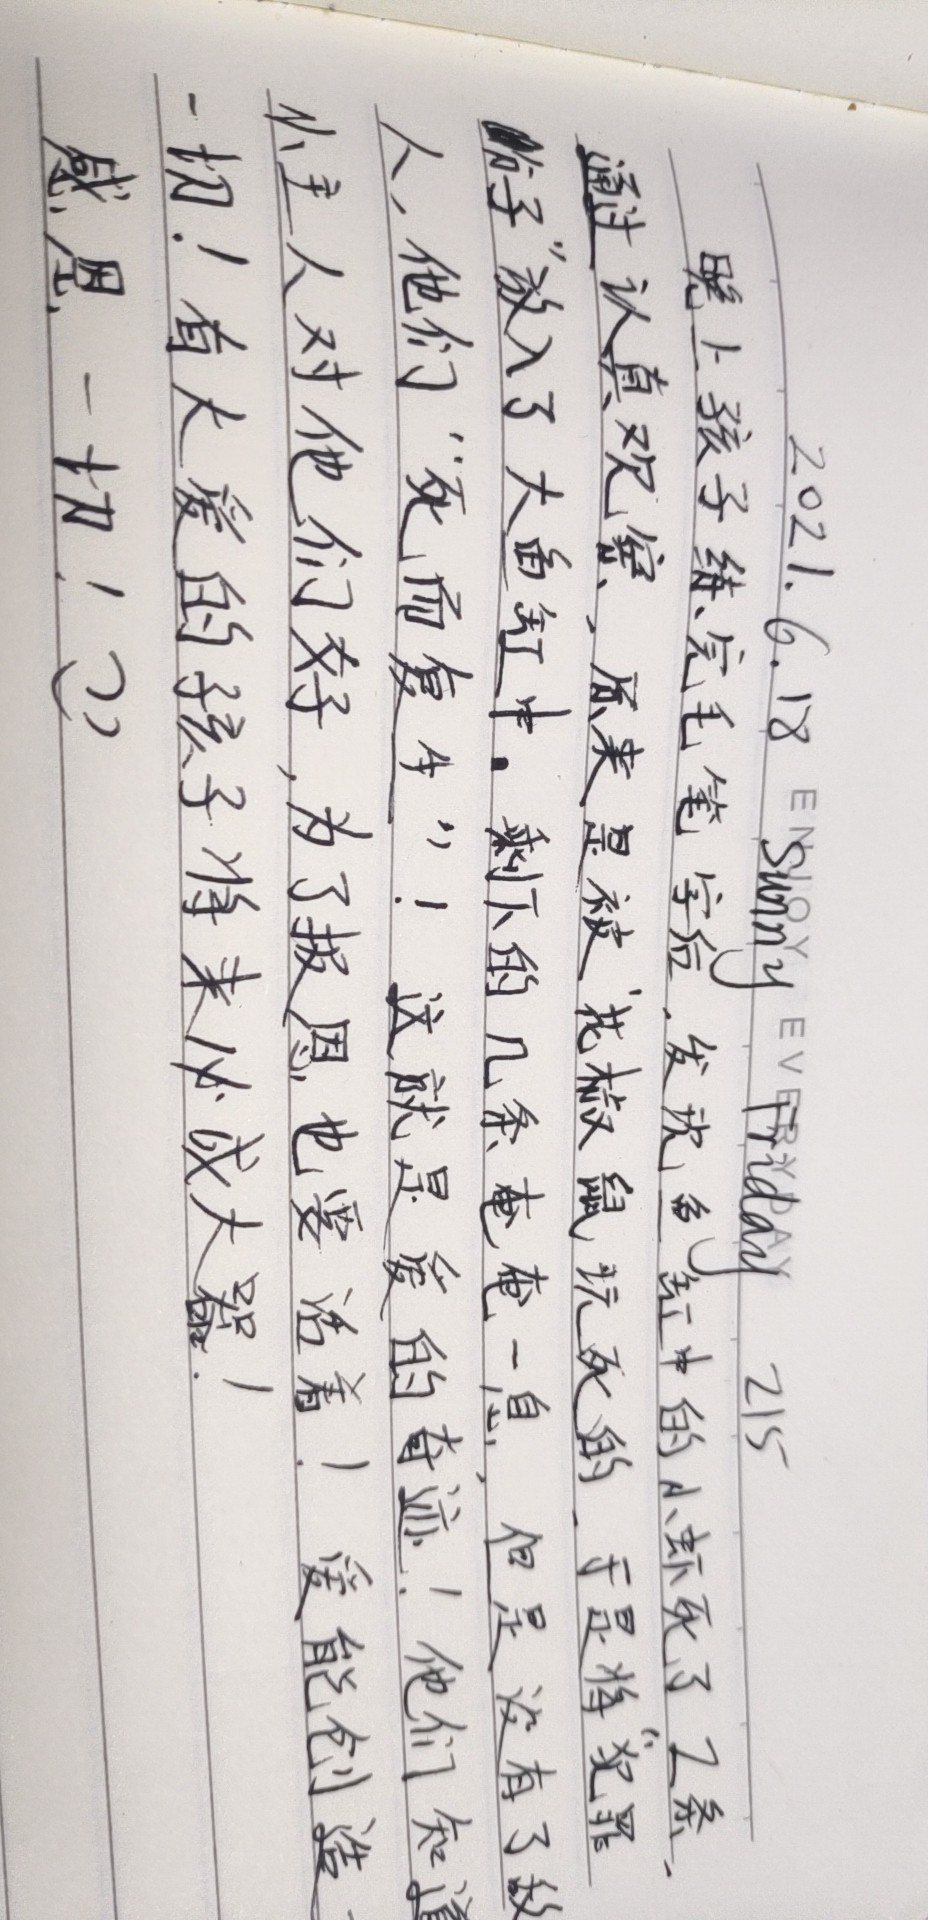 ENJOY EVERYDAY
2021.6.18 Sunny Friday 215
晚上孩子练完毛笔字后，发现鱼缸中的小虾死了2条，
通过认真观察，原来是被花椒鼠玩死的．于是将“犯罪
分子”放入了大鱼缸中．剩下的几条奄奄一息，但是没有了敌
人，他们“死而复生”！这就是爱的奇迹！他们知道
小主人对他们好，为了报恩，也要活着！爱能创造一
切！有大爱的孩子将来必成大器！
感恩一切！